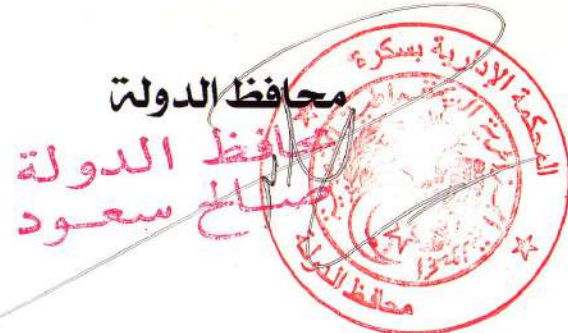 محافظ الدولة
محافظ الدولة
صالح سعود
المحكمة الإدارية بسكرة
محافظ الدولة